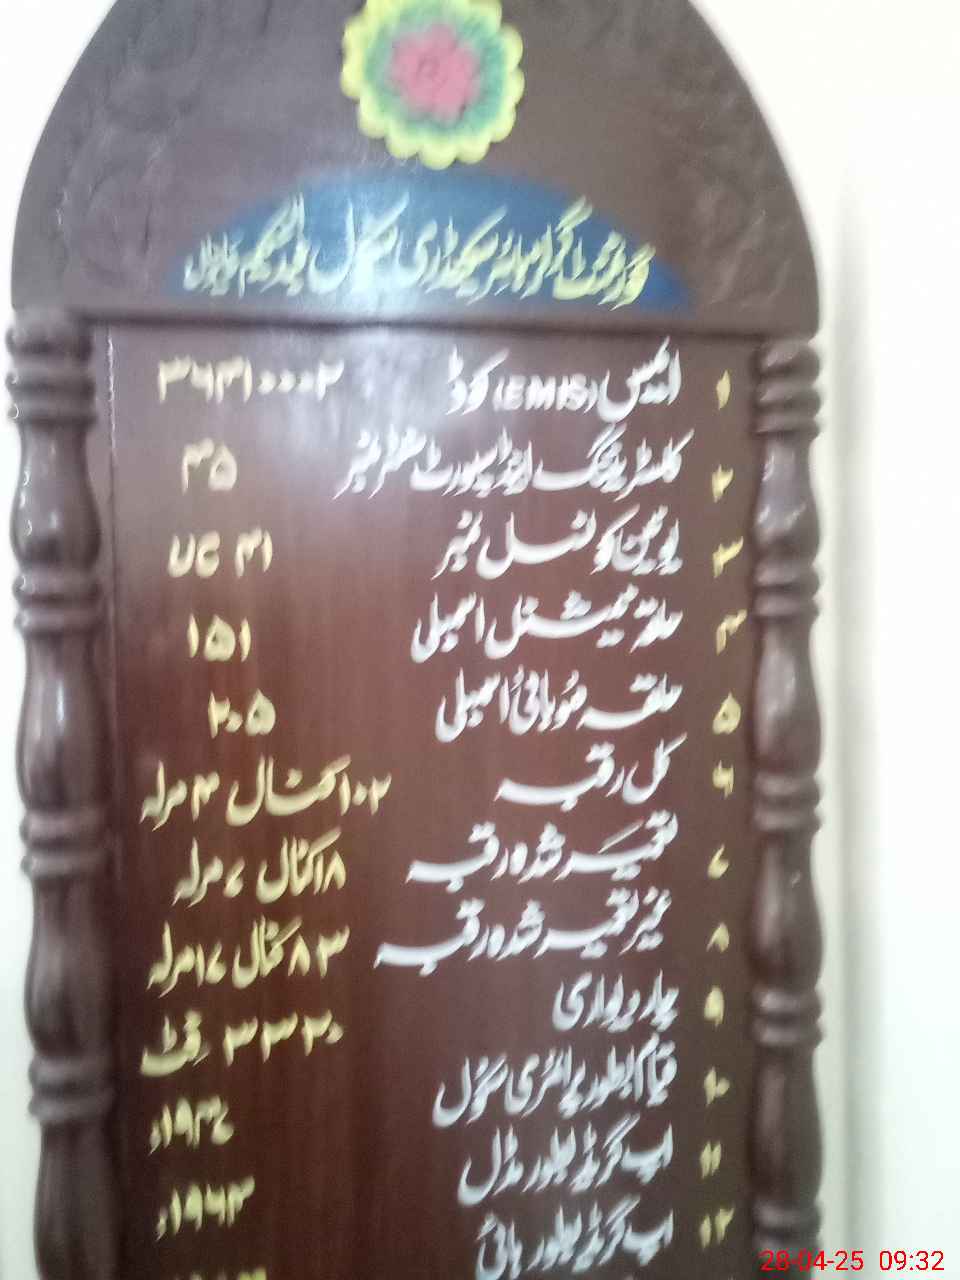 گورنمنٹ گرلز ہائر سیکنڈری سکول
۱ ایمس (EMIS) کوڈ ۳۶۳۱۰۰۰۲
۲ کلسٹر ٹریننگ اینڈ سپورٹ سنٹر نمبر ۴۵
۳ یونین کونسل نمبر ۴۱ UC
۴ حلقہ نیشنل اسمبلی ۱۵۱
۵ حلقہ صوبائی اسمبلی ۲۰۵
۶ کل رقبہ ۱۰۲ کنال ۴ مرلہ
۷ تعمیر شدہ رقبہ ۱۸ کنال ۷ مرلہ
۸ غیر تعمیر شدہ رقبہ ۸۳ کنال ۱۷ مرلہ
۹ چار دیواری ۳۳۲۰ فٹ
۱۰ قیام بطور پرائمری سکول ۱۹۴۷ء
۱۱ اپ گریڈ بطور مڈل ۱۹۶۳ء
۱۲ اپ گریڈ بطور ہائی
28-04-25 09:32